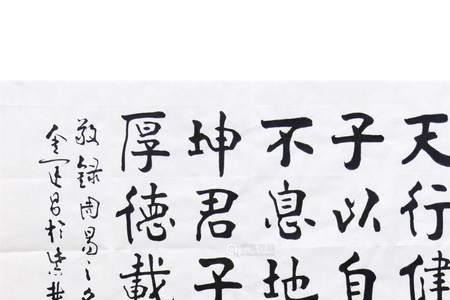 天行健
子以自
不息地
坤君子
厚德載
敬録周易之名
金建昌於